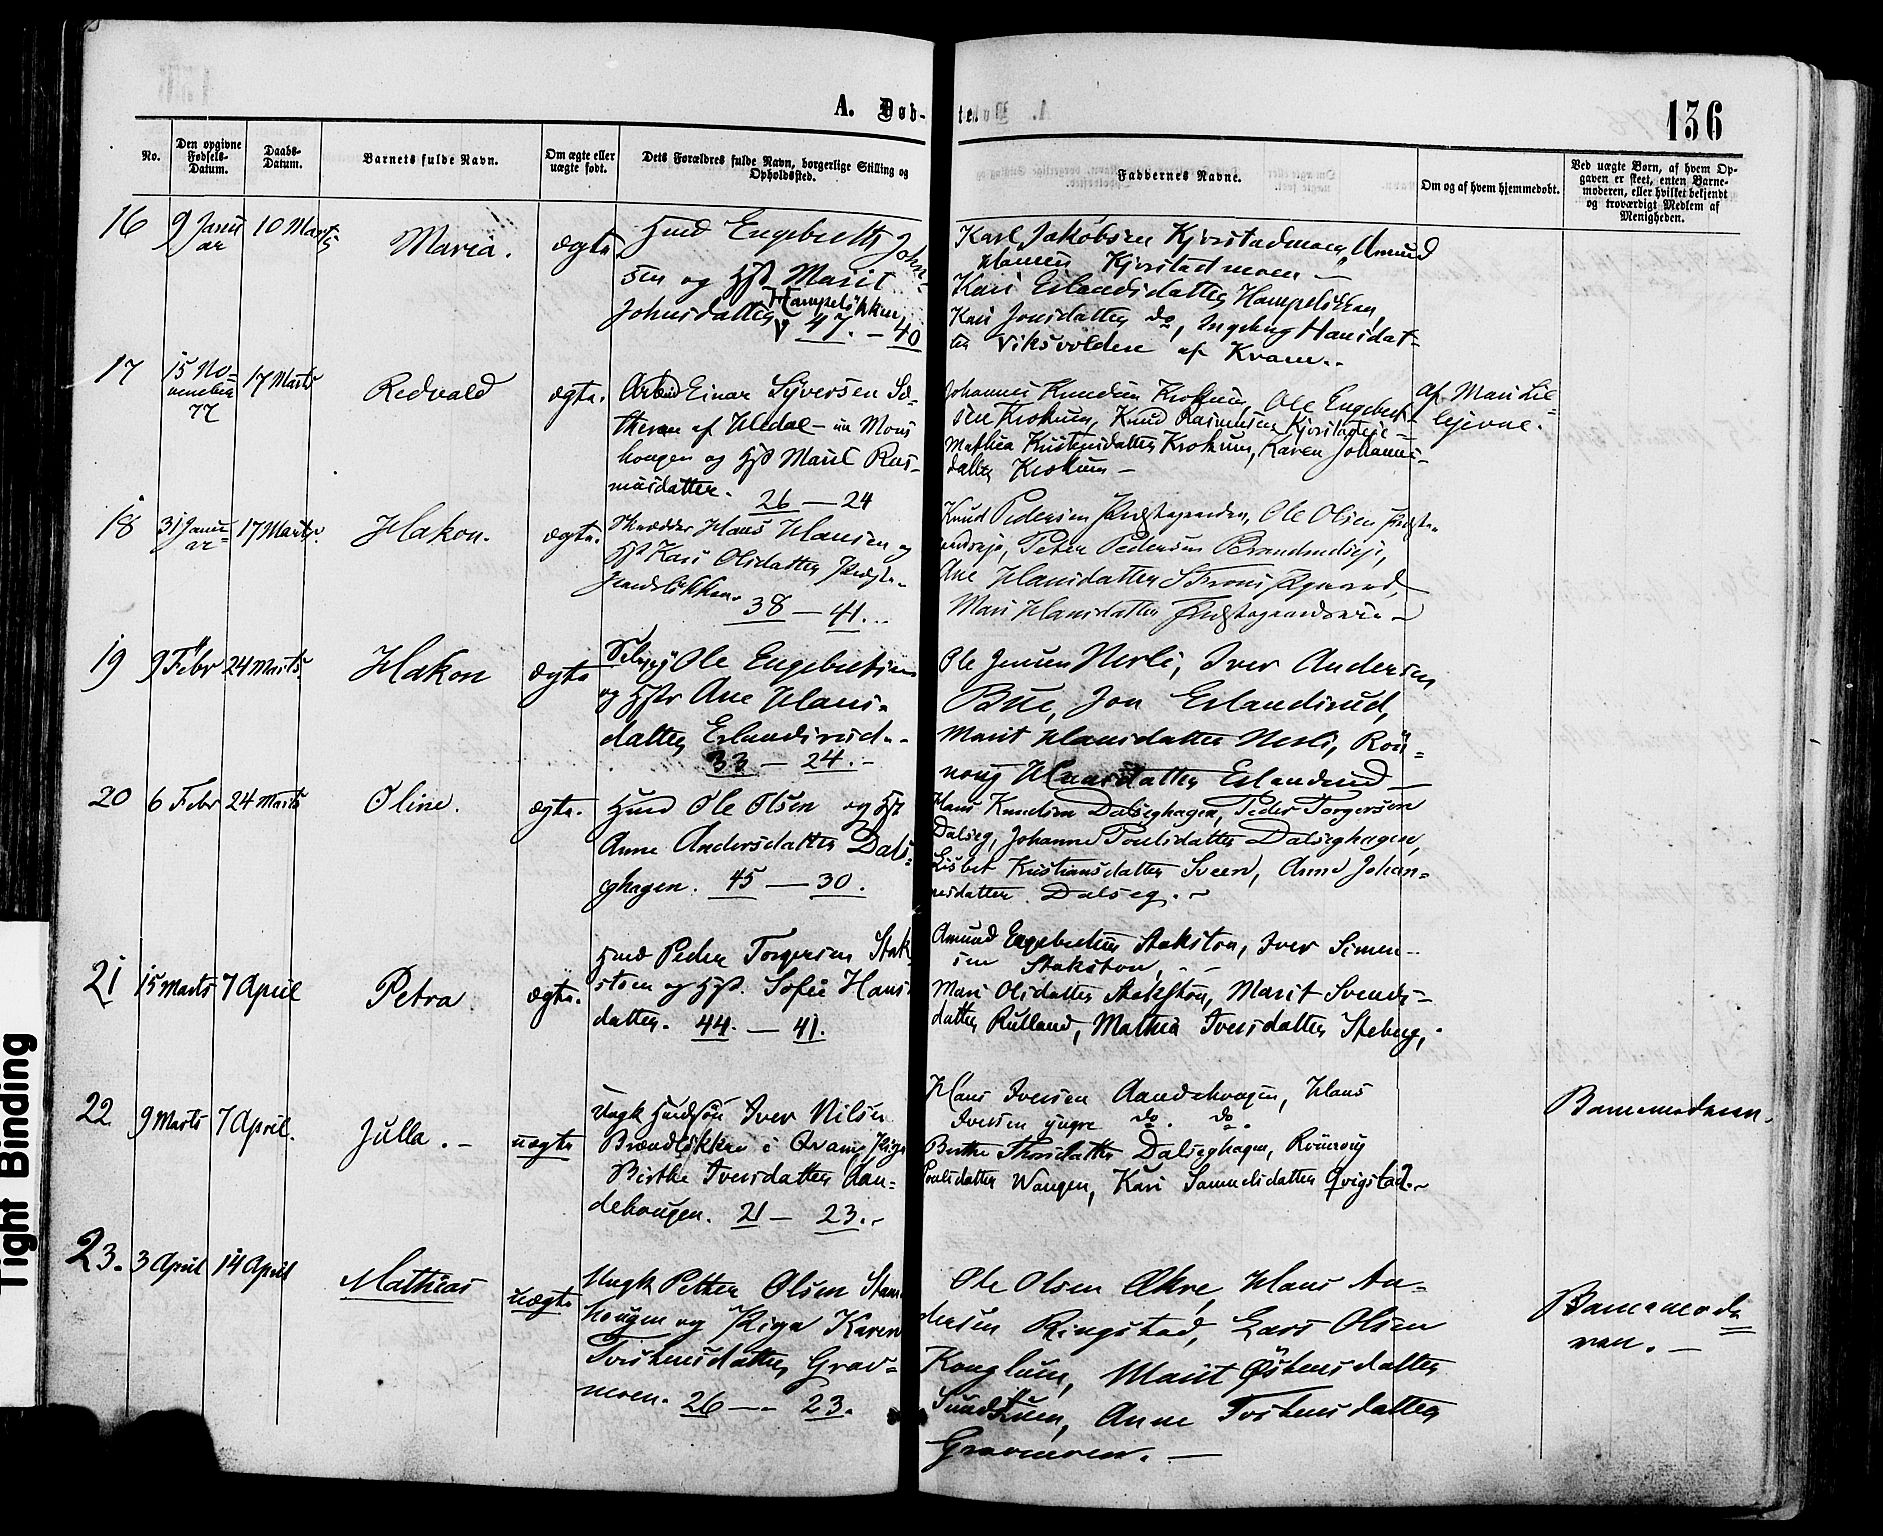 A. Døb-
te.
136
No.
Den opgivne Fødsels-Datum.
Daabs-Datum.
Barnets fulde Navn.
Om ægte eller uægte født.
Dets Forældres fulde Navn, borgerlige Stilling og Opholdssted.
Faddernes Navne.
Om og af hvem hjemmedøbt.
Ved uægte Børn, af hvem Opgaven er skeet, enten Barnemoderen, eller hvilket bekjendt og troværdigt Medlem af Menigheden.
16
9 Janu
ar
10 Marts
Maria.
ægte
Hmd Engebrett John
sen og Hst Marit
Johnsdatter Hampeløkken,
47. - 40
Karl Jakobsen Kjørstadmoen, Amund
Hansen Kjørstadmoen -
Kari Erlandsdatter Hampeløkken,
Kari Jonsdatter do, Ingebrg Hansdat-
ter Viksvolden af Kvam.
17
15 No-
vember
77
17 Marts
Redvald
ægte.
Arbmd Einar Syversen Sø-
theren af Hedal - nu Mons
hougen og Hst Marit Ras-
musdatter. 26 - 24
Johannes Knudsen Krokum, Ole Engebret-
sen Krokum, Knud Rasmussen Kjørstadeie -
Mathea Kristensdatter Krokum, Karen Johannes-
datter Krokum -
Af Mari Lil-
legjerde.
18
31 Janu
ar
17 Marts.
Hakon.
ægte.
Skrædder Hans Hansen og
Hst Kari Olsdatter
38 - 41.
Knud Pedersen Ole Olsen
Peter Pedersen
Ane Hansdatter
Mari Hansdatter
19
9 Febr
24 Marts
Hakon
ægte
Selvej Ole Engebretsen
og Hstr Ane Hans-
datter Erlandsrud.
33 - 24.
Ole Jensen Nerli, Iver Andersen
Bue, Jon Erlandsrud,
Marit Hansdatter Nerli, Røn-
noug Hansdatter Erlandsrud
20
6 Febr
24 Marts
Oline.
ægte.
Hmd Ole Olsen og Hst
Anne Andersdatter Dals-
eghagen. 45 - 30.
Hans Knudsen Dalseghagen, Peder Torgersen
Dalseg, Johanne Poulsdatter Dalseghagen,
Lisbet Kristiansdatter Sveen, Anne Johan-
nesdatter Dalseg. -
21
15 Marts
7 April
Petra
ægte.
Hmd Peder Torgersen Stak
støen og Hst. Sofie Hans
datter. 44. - 41.
Amund Engebretsen Stakston, Iver Simen-
sen Stakston, -
Mari Olsdatter Stakston, Marit Svends-
datter Rulland, Mathea Iversdatter Steberg,
22
9 Marts
7 April.
Julla. -
uægte
Ungk Hmdsøn Iver Nilsen
Brændløkken i Qvam, Pige
Birthe Iversdatter Aan-
dehougen. 21 - 23. -
Hans Iversen Aandehougen, Hans
Iversen yngre do. do.
Berthe Thorsdatter Dalseghagen, Rønnoug
Poulsdatter Wangen, Kari Samuelsdatter Qvigstad. -
Barnemoderen.
23.
3 April
14 April
Mathias
uægte
Ungk Petter Olsen
hougen og Pige Karen
Torstensdatter Grav-
moen. 26 - 23.
Ole Olsen Ekre, Hans An-
dersen Ringstad, Lars Olsen
Konglum, Marit Østensdatter
Anne Tostensdatter
Gravmoen. -
Barnemode
ren. -
Tight Binding